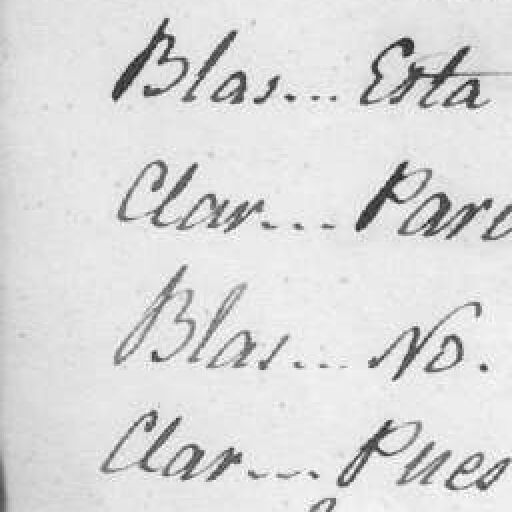 Blas... Esta
Clar.... Par
Blas... No.
Clar.... Pues